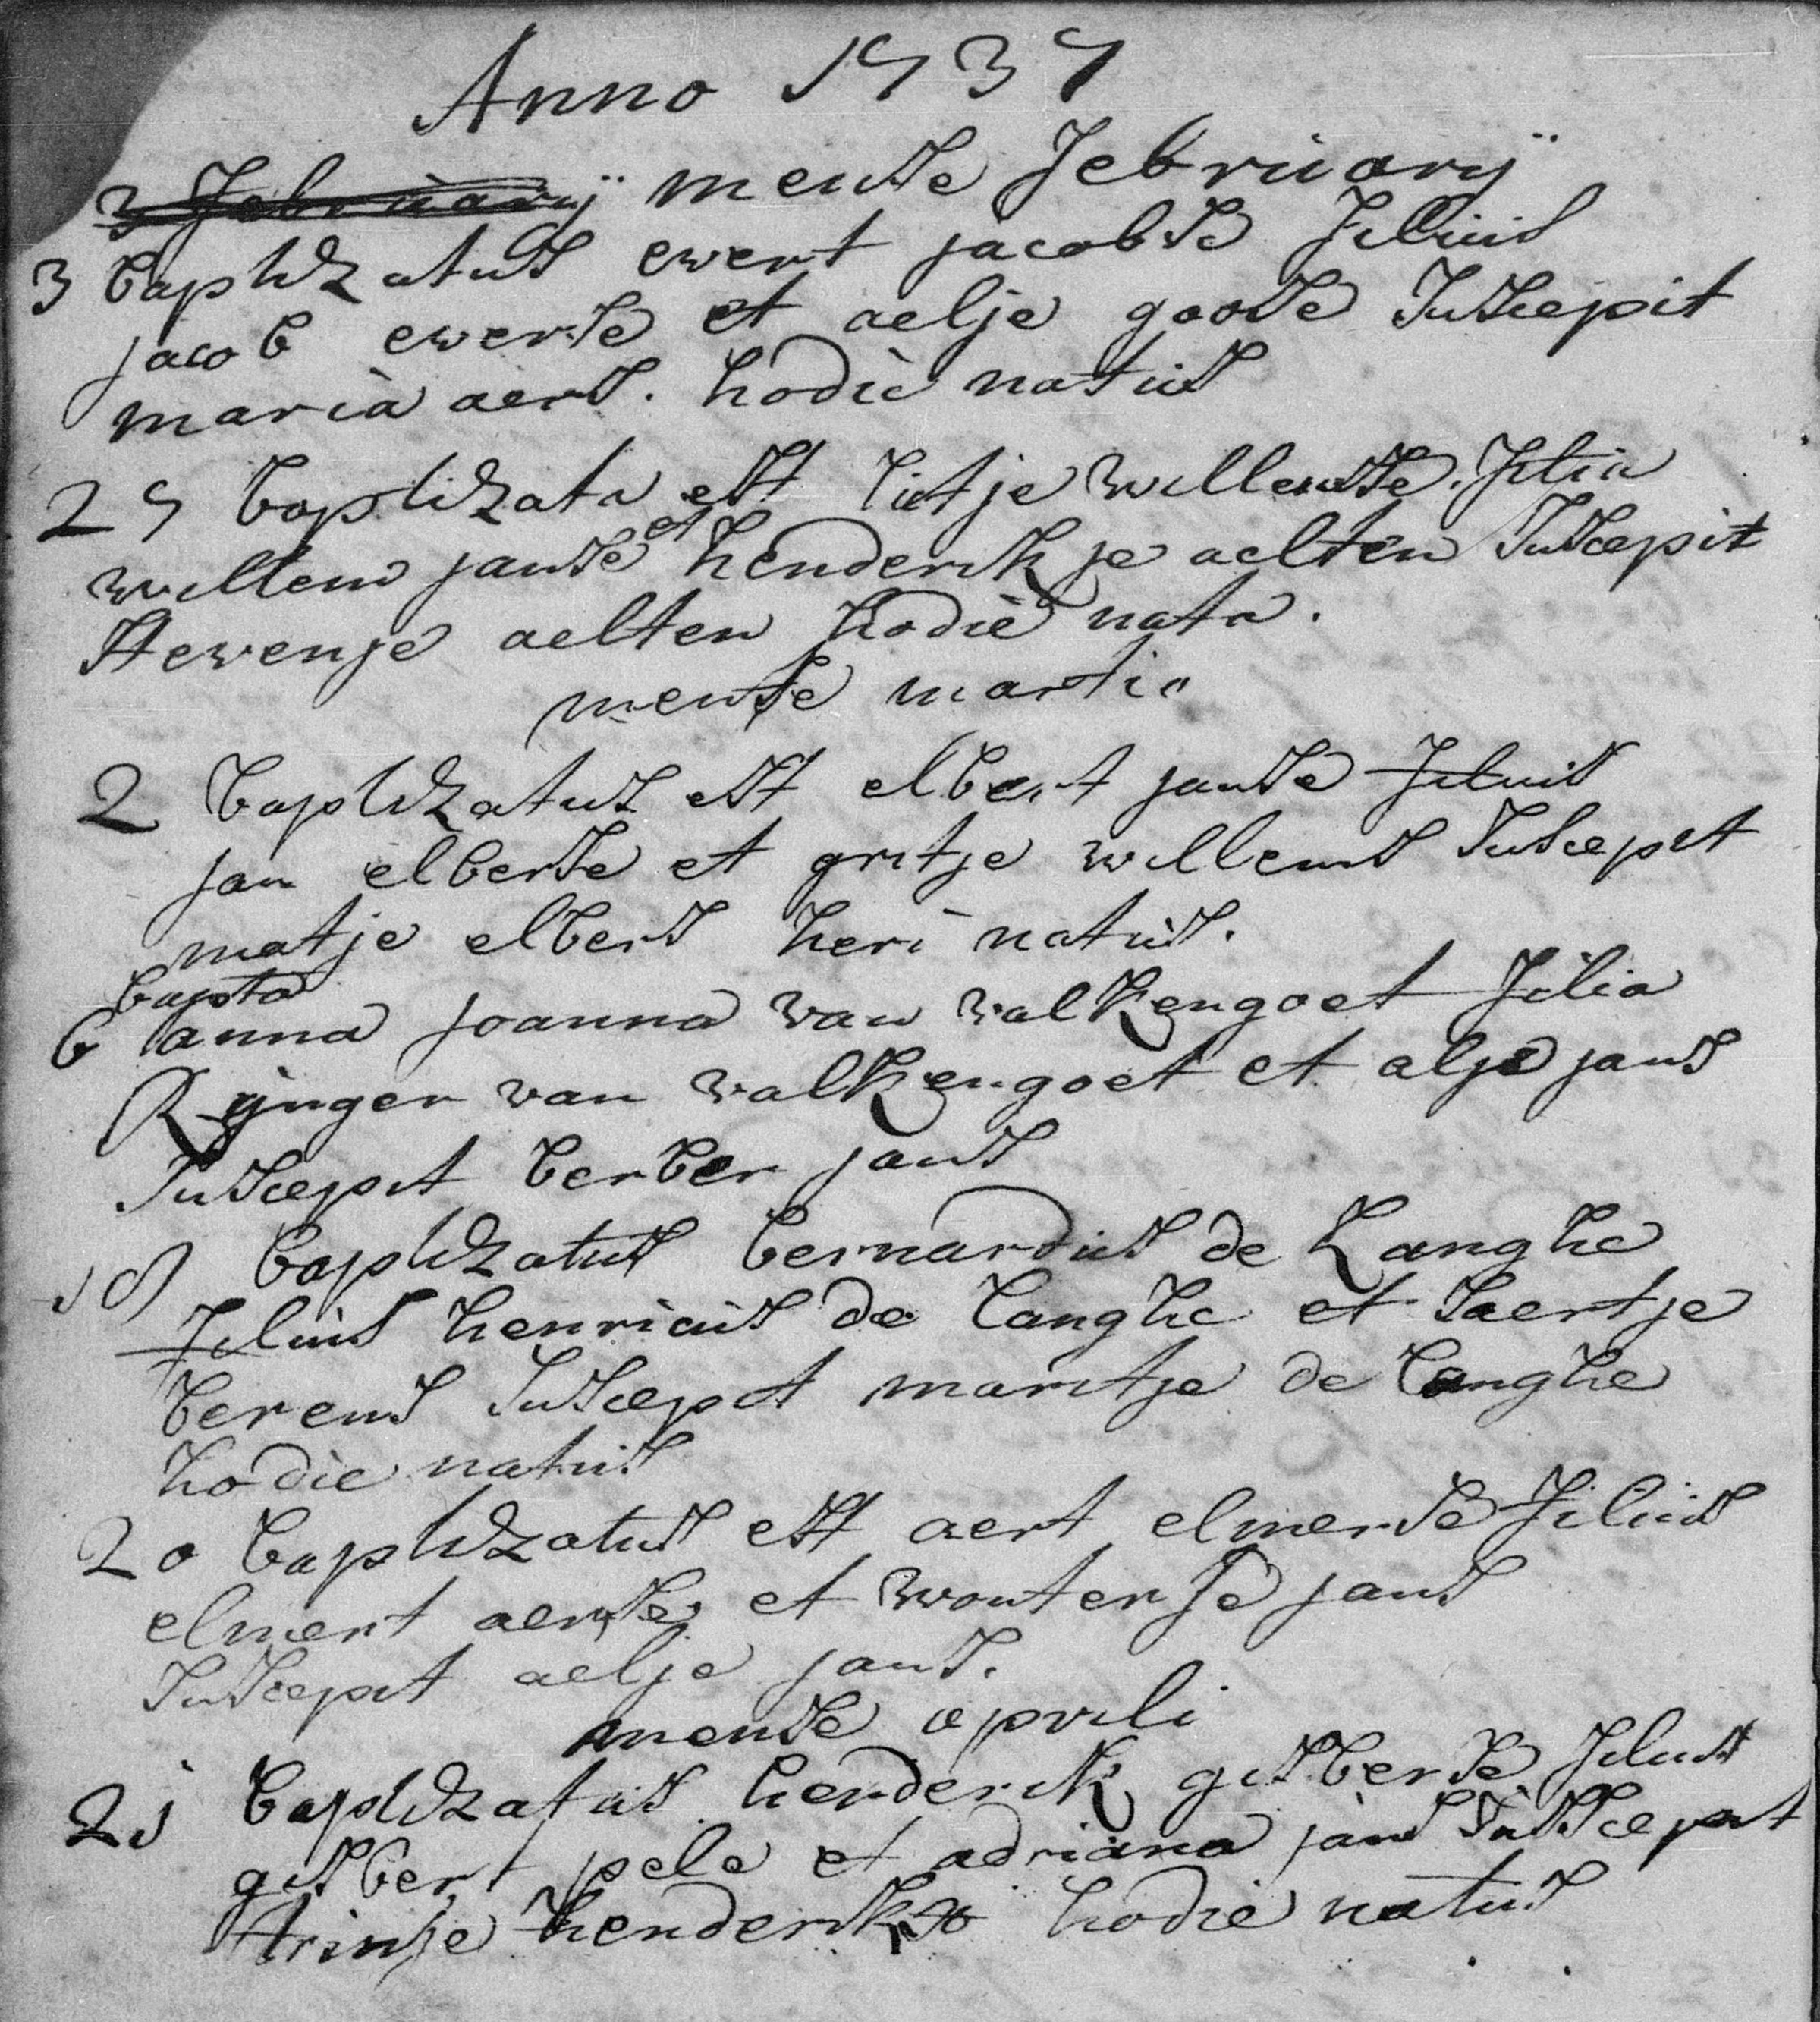 Anno 1737
3 februarij mense februarij
3 baptizatus evert jacobse filius
jacob everse et aelje goose suscepit
maria aers. hodie natus
27 baptizata est lutje willemse. filia
willem janse et henderikje aelten suscepit
stevenje aelten hodie nata.
mense martio
2 baptizatus est elbert janse filius
jan elberse et gritje willems suscepit
matje elbers heri natus.
bapta
6 anna joanna van valkengoet filia
Rijnger van valkengoet et alje jans
suscepit berber jans
18 baptizatus bernardus de Langhe
filius henricus de langhe et saertje
berens suscepit maritje de langhe
hodie natus
20 baptizatus est aert elmerse filius
elmert aerse et wouterje jans
suscepit aelje jans.
mense aprili
21 baptizatus henderik gisberse filius
gisbert pele et adriana jans suscepit
trinje henderiks hodie natus